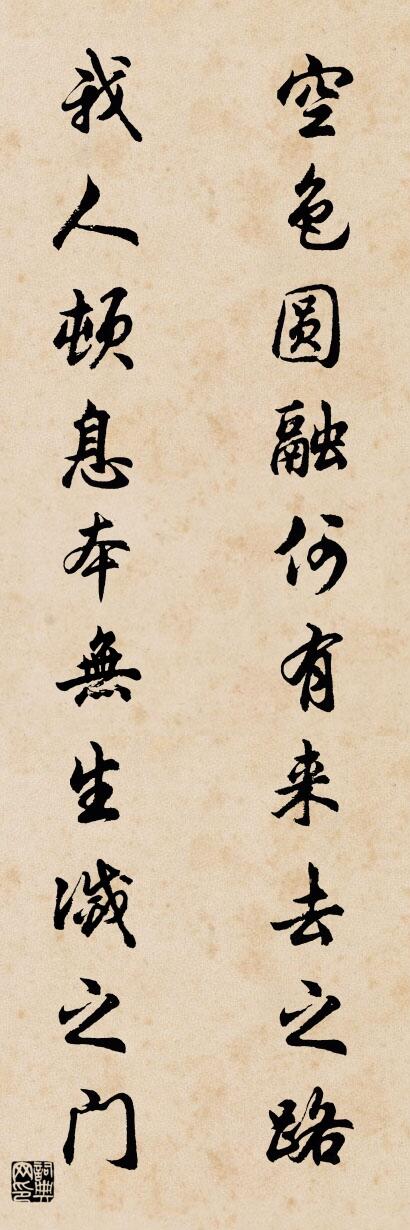 空色圆融何有来去之路
我人顿息本無生滅之门
詞典网印